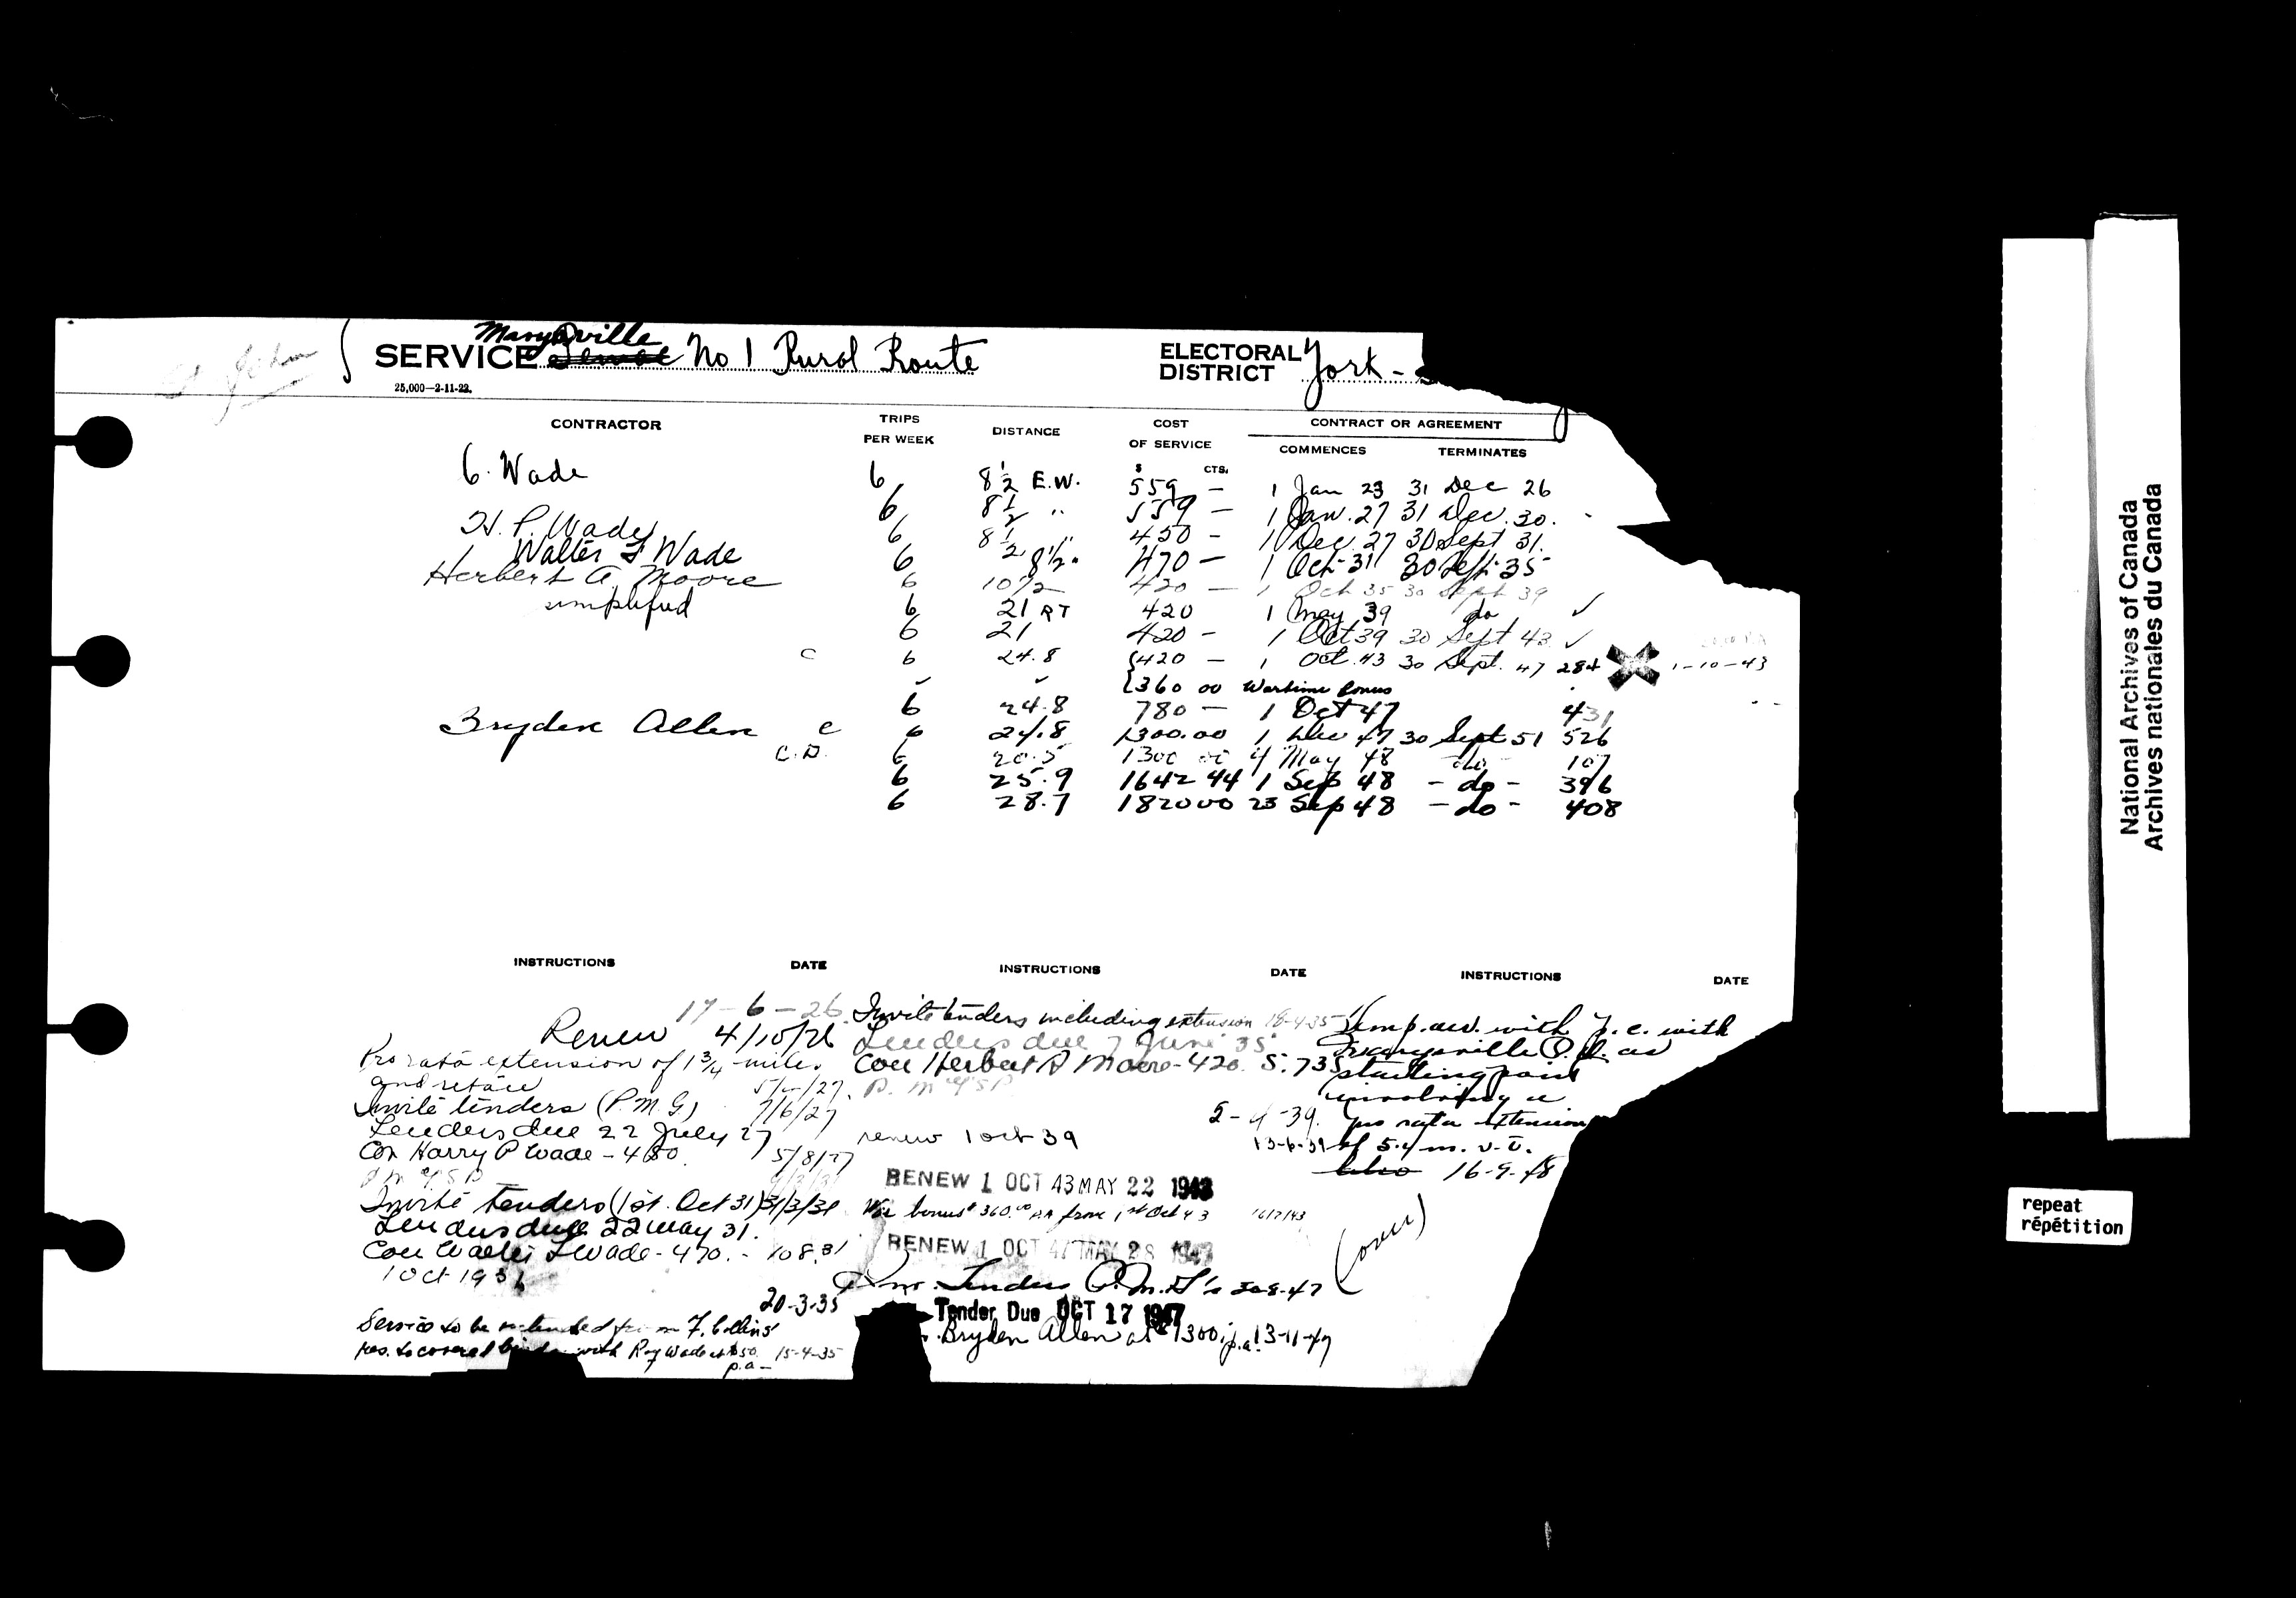 St. John
Marysville
SERVICE No 1 Rural Route
ELECTORAL DISTRICT York -
25,000—2-11-22.
CONTRACTOR TRIPS PER WEEK DISTANCE COST OF SERVICE CONTRACT OR AGREEMENT
COMMENCES TERMINATES
$ CTS.
Wade 6 8 1/2 E.W. 559 — 1 Jan 23 31 Dec 26
6 8 1/2 " 559 — 1 Jan. 27 31 Dec. 30.
H. P. Wade 6 8 1/2 " 450 - 1 Dec. 27 30 Sept 31.
Walter L Wade 6 8 1/2 " 470 — 1 Oct-31 30 Sept-35
Herbert A. Moore 6 10 1/2 420 — 1 Oct 35 30 Sept 39
simplified 6 21 RT 420 1 May 39 do ✓
6 21 420 - 1 Oct 39 30 Sept 43 ✓
C 6 24.8 {420 — 1 Oct. 43 30 Sept. 47 284 1-10-43
{360 00 Wartime Bonus
6 24.8 780 — 1 Oct 47 431
Bryden Allen C 6 24.8 1300.00 1 Dec 47 30 Sept 51 526
C.D. 6 20.5 1300 00 4 May 48 do 107
6 25.9 1642 44 1 Sep 48 - do - 396
6 28.7 1820 00 23 Sep 48 - do - 408
INSTRUCTIONS DATE INSTRUCTIONS DATE INSTRUCTIONS DATE
17-6-26
Renew 4/10/26
Pro rata extension of 1 3/4 mile.
and retain
Invite tenders (P.M.G.) 7/6/27
Tenders due 22 July 27
Con Harry P Wade - 450 5/8/27
P M G S P
Invite tenders (1st. Oct 31) 31/3/31
Tenders due 22 May 31.
Con Walter L Wade - 470. - 10 8.31
1 Oct 1931
20-3-35
Service to be extended from F. Collins'
with Roy Wade at $50 15-4-35
p.a -
Invite tenders including extension 18-4-35
Tenders due 7 June 35
Con Herbert A Moore - 420. 5.7 35
renew 1 oct 39
RENEW 1 OCT 43 MAY 22 1943
War bonus $360.00 PA from 1st Oct 43 16/7/43
RENEW 1 OCT 47 MAY 28 1947
Inv. Tenders P.M.G's 30-8-47
Tender Due OCT 17 1947
Bryden Allen at $1300 p.a. 13-11-47
with
Marysville P.O. as
starting point
involving a
5-4-39. pro rata extension
13-6-39 of 5.4 m. v.t.
16-9-48
(over)
National Archives of Canada
Archives nationales du Canada
repeat
répétition